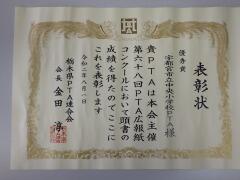 表彰状
優秀賞
宇都宮市立中央小学校PTA様
貴PTAは本会主催
第六十八回PTA広報紙
コンクールにおいて頭書の
成績を得たのでここに
これを表彰します
令和二年八月一日
栃木県PTA連合会
会長 金田 淳